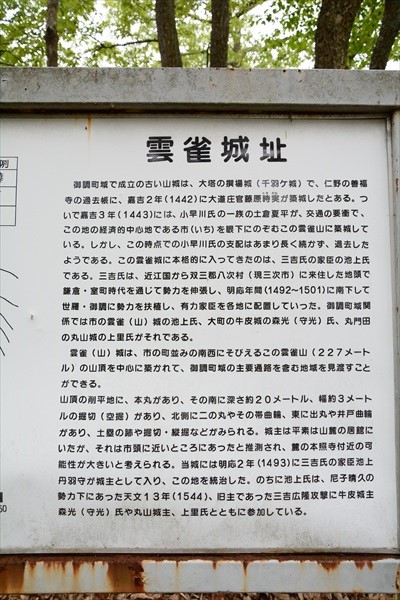 雲雀城址
御調町域で成立の古い山城は、大塔の撰場城（千羽ケ城）で、仁野の善福
寺の過去帳に、嘉吉２年（1442）に大道庄官藤原時実が築城したとある。つ
いで嘉吉３年（1443）には、小早川氏の一族の土倉夏平が、交通の要衝で、
この地の経済的中心地である市（いち）を眼下にのぞむこの雲雀山に築城して
いる。しかし、この時点での小早川氏の支配はあまり長く続かず、退去した
ようである。この雲雀城に本格的に入ってきたのは、三吉氏の家臣の池上氏
である。三吉氏は、近江国から双三郡八次村（現三次市）に来住した地頭で
鎌倉・室町時代を通じて勢力を伸張し、明応年間（1492〜1501）に南下して
世羅・御調に勢力を扶植し、有力家臣を各地に配置していった。御調町域関
係では市の雲雀（山）城の池上氏、大町の牛皮城の森光（守光）氏、丸門田
の丸山城の上里氏がそれである。
雲雀（山）城は、市の町並みの南西にそびえるこの雲雀山（２２７メート
ル）の山頂を中心に築かれて、御調町域の主要通路を含む地域を見渡すこと
ができる。
山頂の削平地に、本丸があり、その南に深さ約２０メートル、幅約３メート
ルの掘切（空掘）があり、北側に二の丸やその帯曲輪、東に出丸や井戸曲輪
があり、土塁の跡や掘切・縦掘などがみられる。城主は平素は山麓の居館に
いたが、それは市頭に近いところにあったと推測され、麓の本照寺付近の可
能性が大きいと考えられる。当城には明応２年（1493）に三吉氏の家臣池上
丹羽守が城主として入り、この地を統治した。のちに池上氏は、尼子晴久の
勢力下にあった天文１３年（1544）、旧主であった三吉広隆攻撃に牛皮城主
森光（守光）氏や丸山城主、上里氏とともに参加している。
例
50